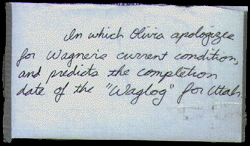 In which Olivia apologizes
for Wagner's current condition,
and predicts the completion
date of the "Waglog" for Utah